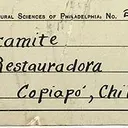 URAL SCIENCES OF PHILADELPHIA: NO.
ramite
Restauradora
Copiapó, Chil